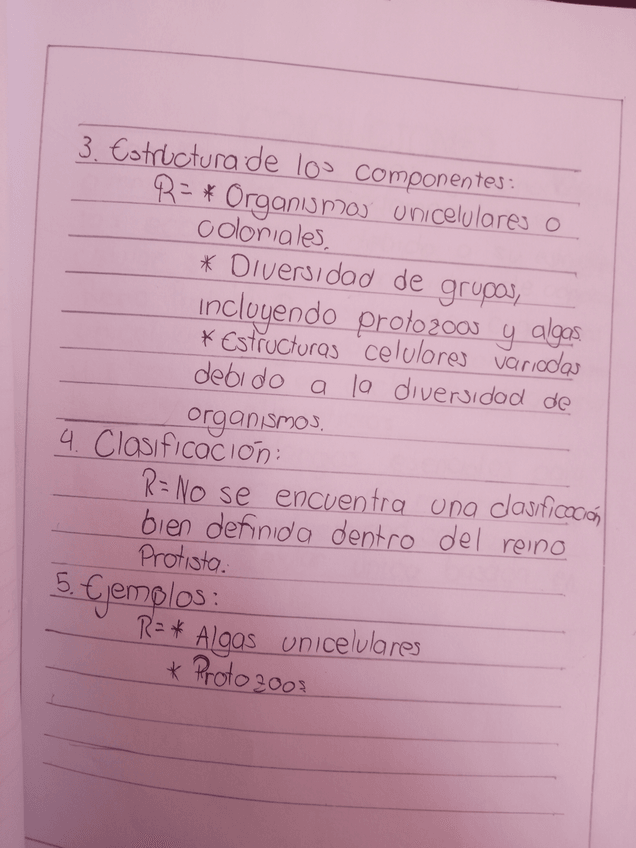 3. Estructura de los componentes:
R= * Organismos unicelulares o
coloniales.
* Diversidad de grupos,
incluyendo protozoos y algas.
* Estructuras celulares variadas
debido a la diversidad de
organismos.
4. Clasificación:
R= No se encuentra una clasificación
bien definida dentro del reino
Protista.
5. Ejemplos:
R= * Algas unicelulares
* Protozoos